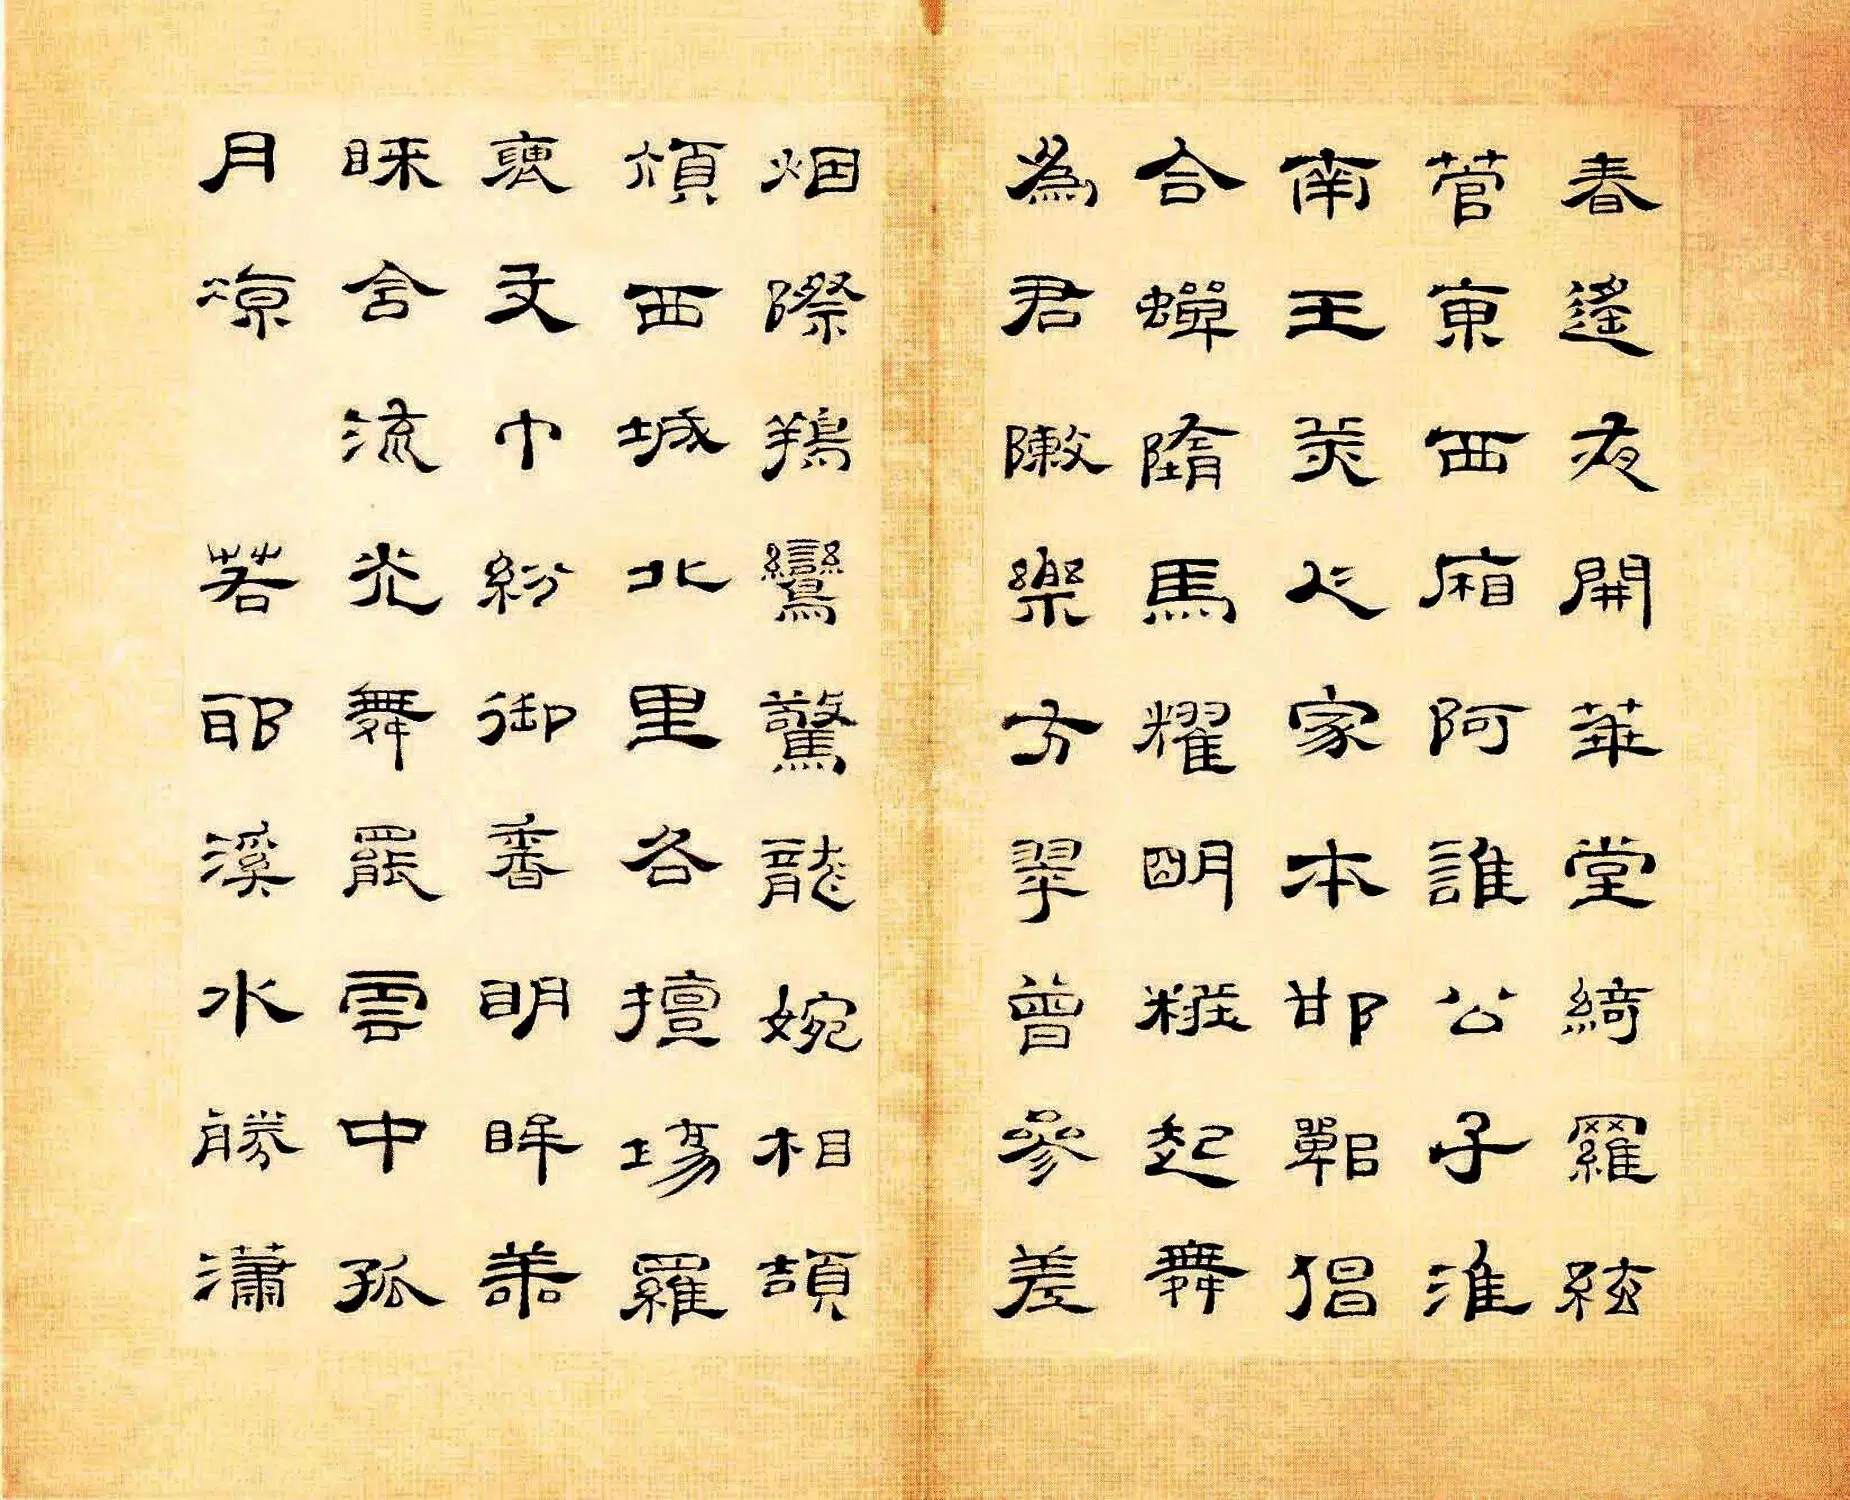 春遙夜開華堂綺羅絃
菅東西廂阿誰公子淮
南王美人家本邯鄲倡
合蟬墮馬耀明糚起舞
為君敶樂方翠曾參差
烟際鸞驚龍婉相頡
頏西城北里各擅場羅
褏文巾紛御香明眸善
睞含流光舞罷雲中孤
月凉 若耶溪水勝瀟